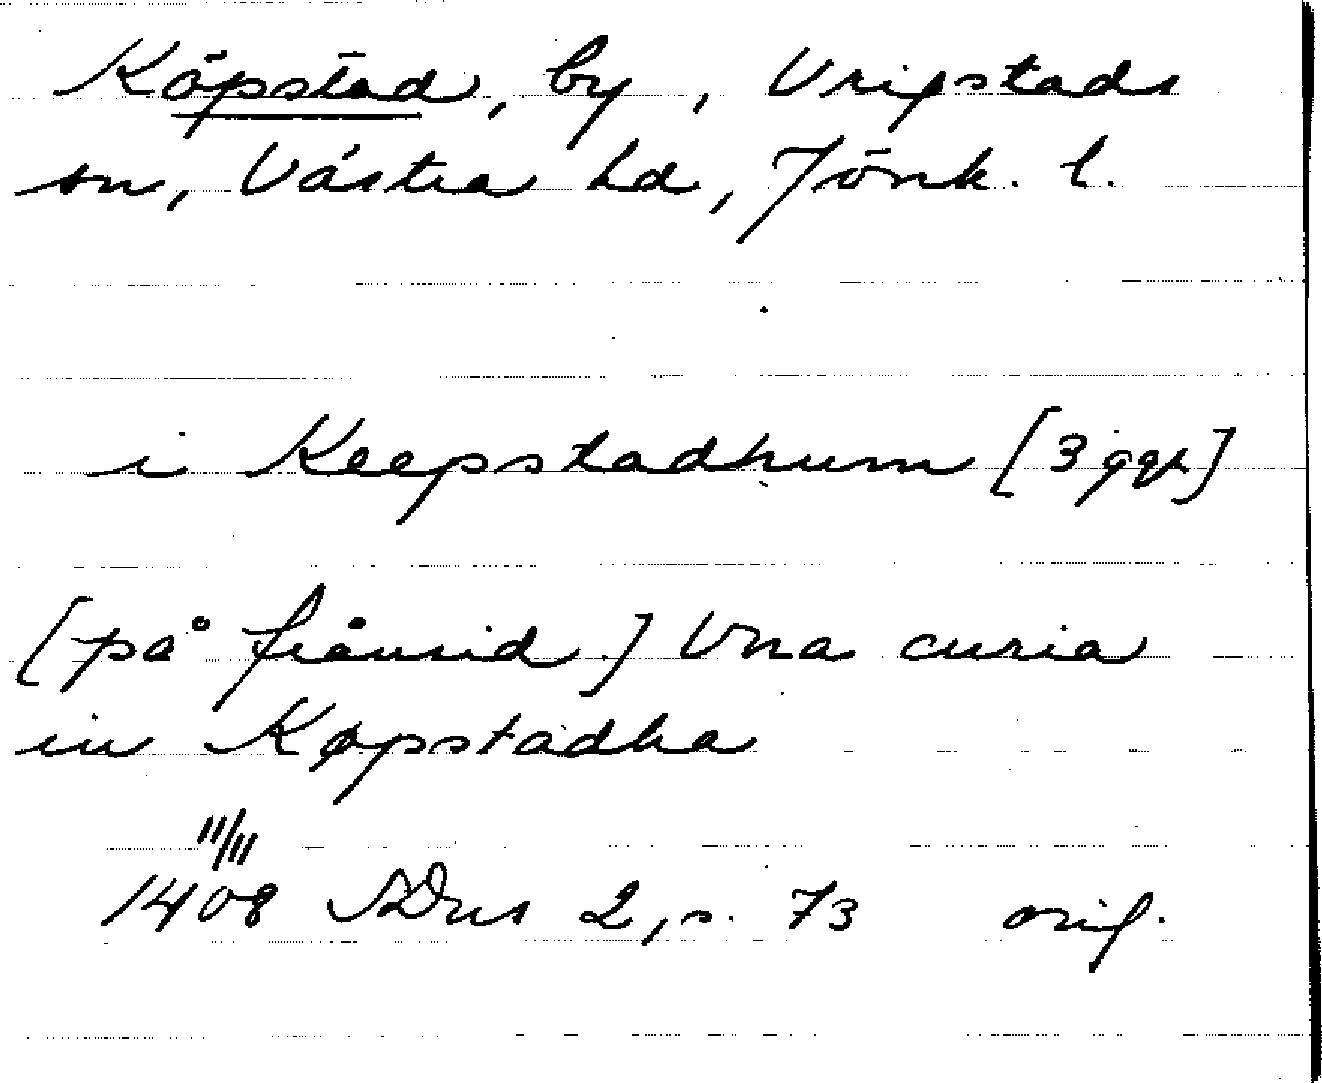 Köpstad, by, Vrigstads
sn, Västra hd, Jönk. l.
i Keepstadhum [3 ggr]
[på frånsid.] Vna curia
in Køpstadha
11/11
1408 SDns 2, s. 73 orig.